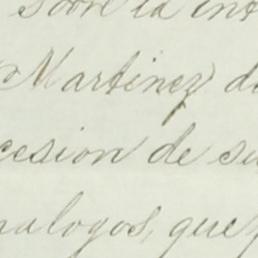 sobre la int
Martinez) d
cesion de su
nalogos, que